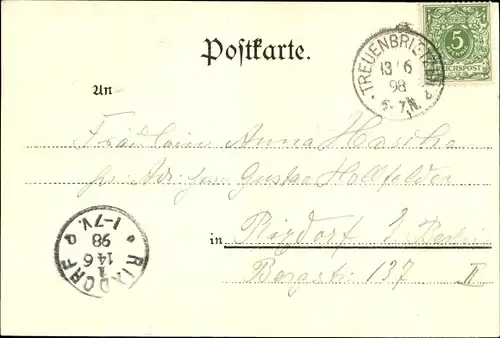 Postkarte.
TREUENBRIETZEN
13 6
98
6-7N.
5
REICHSPOST
An
Fräulein Anna Hascke
per Adr. Herrn Gustav Hollfelder
in Rixdorf b/Berlin
Bergstr 137 II
RIXDORF
1
14 6
98
1-7V.